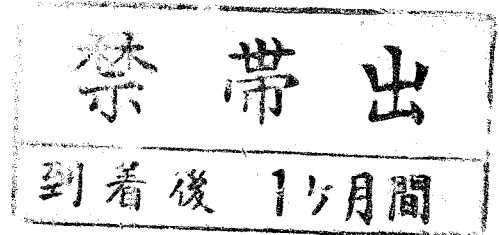 禁帯出
到着後 1ヶ月間